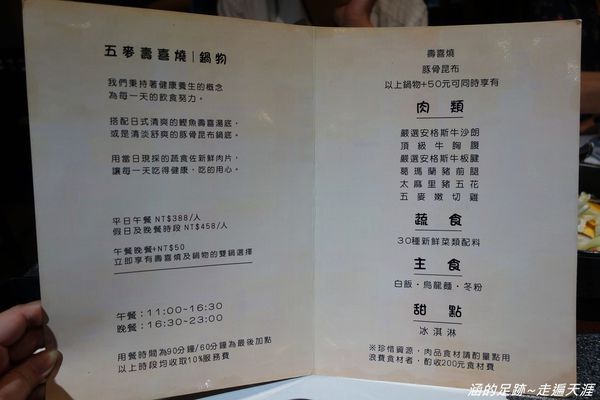 五麥壽喜燒|鍋物
我們秉持著健康養生的概念
為每一天的飲食努力。
搭配日式清爽的鰹魚壽喜湯底，
或是清淡舒爽的豚骨昆布鍋底。
用當日現採的蔬食佐新鮮肉片，
讓每一天吃得健康，吃的用心。
平日午餐 NT$388/人
假日及晚餐時段 NT$458/人
午餐晚餐+NT$50
立即享有壽喜燒及鍋物的雙鍋選擇
午餐：11:00~16:30
晚餐：16:30~23:00
用餐時間為90分鐘/60分鐘為最後加點
以上時段均收取10%服務費
壽喜燒
豚骨昆布
以上鍋物+50元可同時享有
肉類
嚴選安格斯牛沙朗
頂級牛胸腹
嚴選安格斯牛板腱
葛瑪蘭豬前腿
太麻里豬五花
五麥嫩切雞
蔬食
30種新鮮菜類配料
主食
白飯·烏龍麵·冬粉
甜點
冰淇淋
※珍惜資源，肉品食材請酌量點用
浪費食材者，酌收200元食材費
涵的足跡~走遍天涯